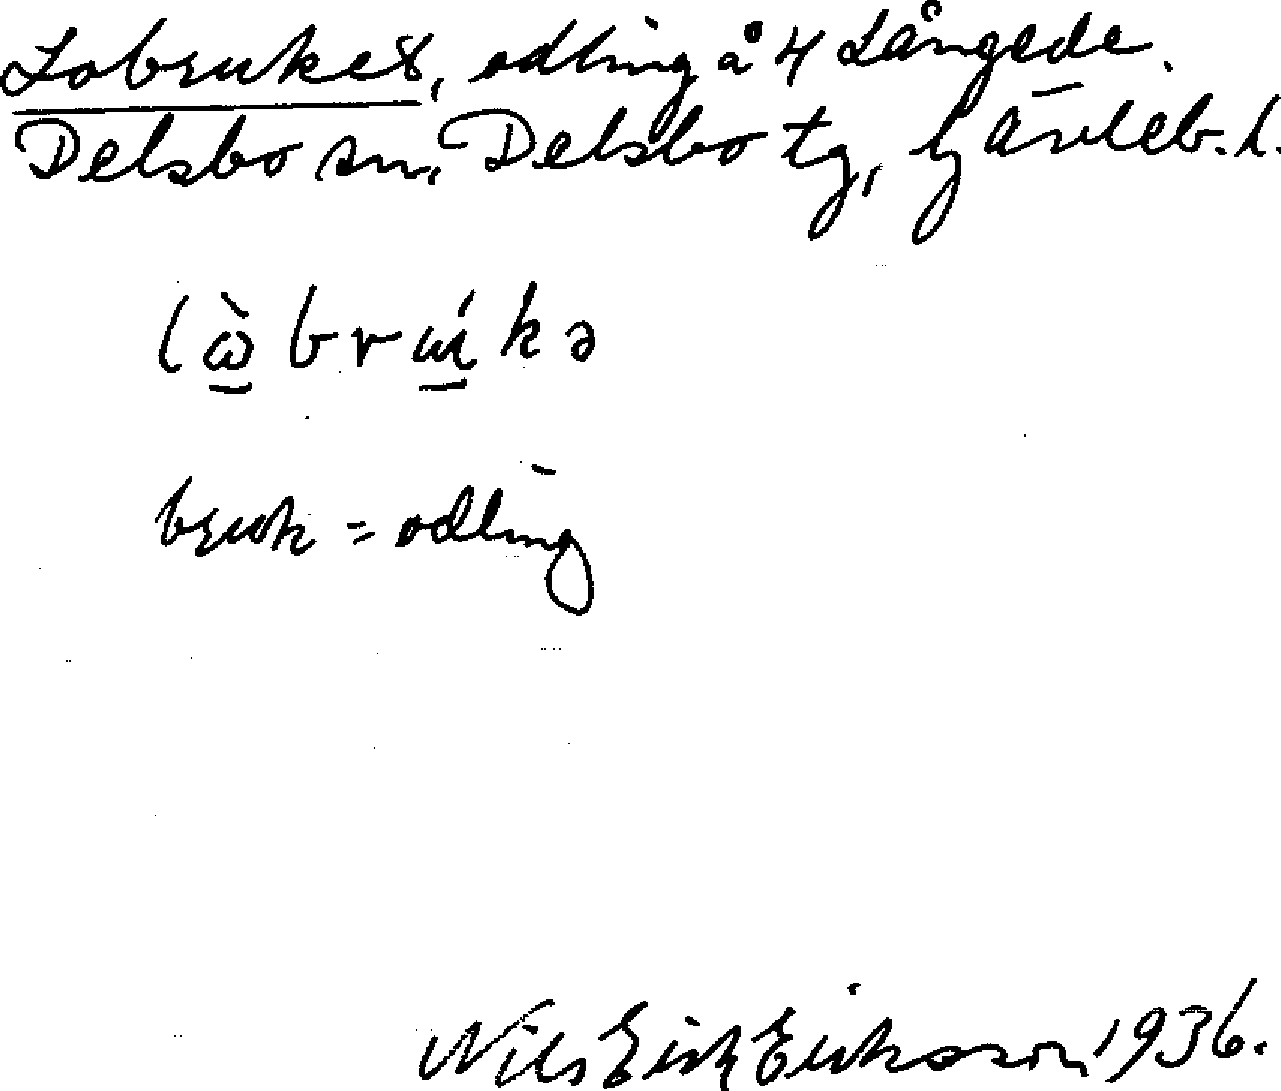 Lobruket, odling å 4 Långede.
Delsbo sn, Delsbo tg, Gävleb. l.
lὼ̲brɯ̲́kə
bruk = odling
Nils Erik Eriksson 1936.